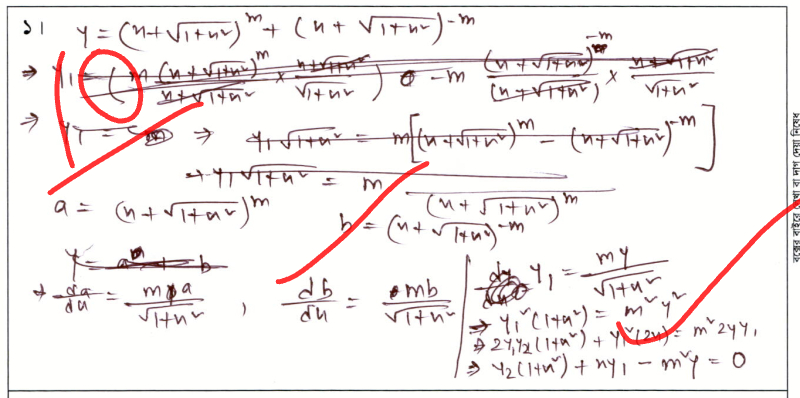 ১।  y = (x+√(1+x²))^m + (x + √(1+x²))^-m
⇒ y₁ = (m (x+√(1+x²))^m / (x+√(1+x²)) × (x+√(1+x²)) / √(1+x²)) - m (x+√(1+x²))^-m / (x+√(1+x²)) × (x+√(1+x²)) / √(1+x²)
⇒ y₁ = ⇒ y₁√(1+x²) = m[(x+√(1+x²))^m - (x+√(1+x²))^-m]
⇒ y₁√(1+x²) = m (x+√(1+x²))^m
a = (x+√(1+x²))^m  b = (x+√(1+x²))^-m
y = a + b
⇒ da/dx = ma/√(1+x²) , db/dx = mb/√(1+x²)
y₁ = my/√(1+x²)
⇒ y₁²(1+x²) = m²y²
⇒ 2y₁y₂(1+x²) + y₁²(2x) = m²2yy₁
⇒ y₂(1+x²) + xy₁ - m²y = 0
বক্সের বাইরে লেখা বা দাগ দেয়া নিষেধ